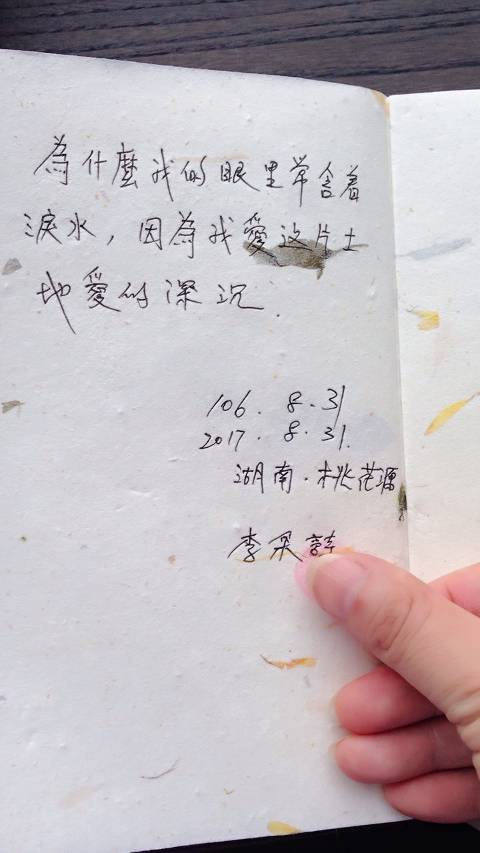 為什麼我的眼里常含着
淚水，因為我愛這片土
地愛的深沉.
106. 8. 31
2017. 8. 31.
湖南·桃花源
李采